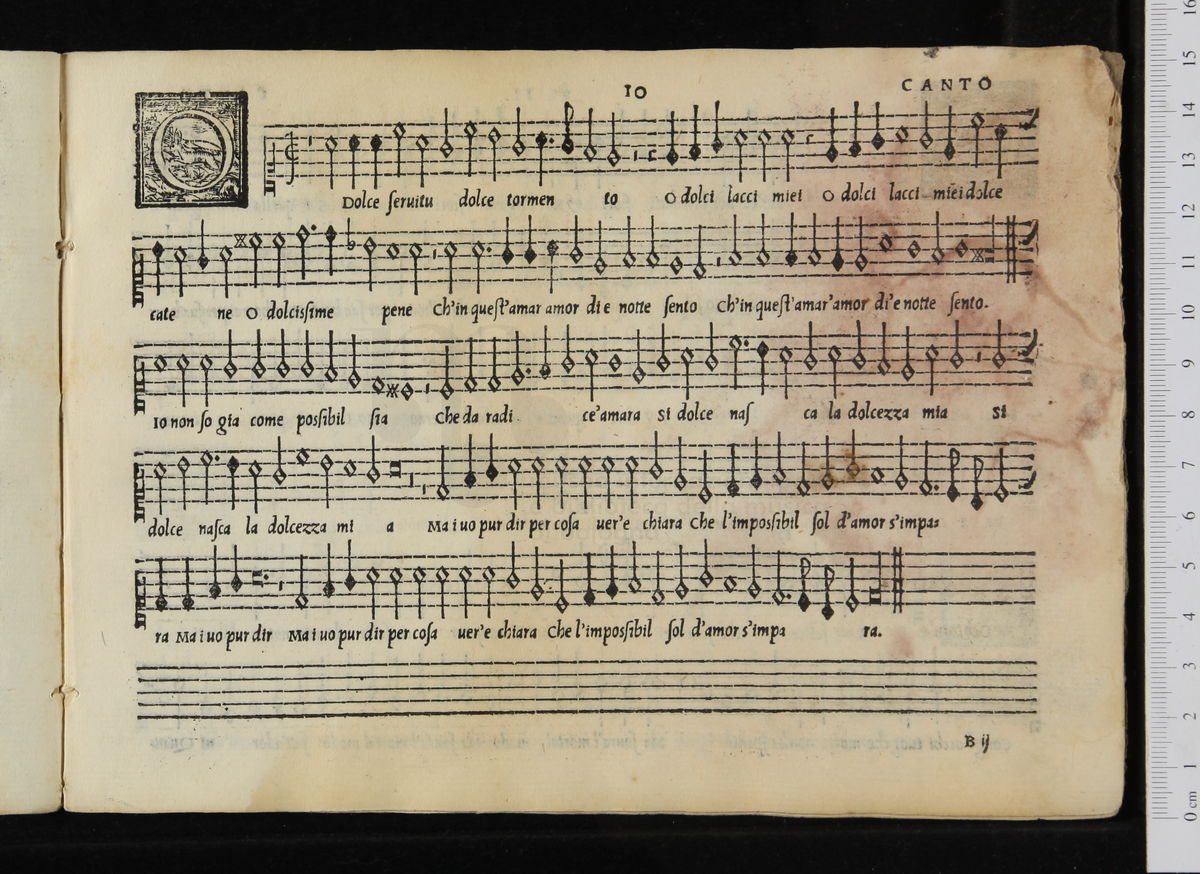 10 CANTO
O Dolce ſeruitu dolce tormen to O dolci lacci miei O dolci lacci miei dolce
cate ne O dolciſsime pene Ch'in queſt'amar amor di e notte ſento Ch'in queſt'amar'amor di'e notte ſento.
Io non ſo gia come poſsibil ſia Che da radi ce'amara Si dolce naſ ca la dolcezza mia Si
dolce naſca la dolcezza mi a Ma i uo pur dir per coſa uer'e chiara Che l'impoſsibil ſol d'amor s'impa:
ra Ma i uo pur dir Ma i uo pur dir per coſa uer'e chiara Che l'impoſsibil ſol d'amor s'impa ra.
B ij
0 cm 1 2 3 4 5 6 7 8 9 10 11 12 13 14 15 16